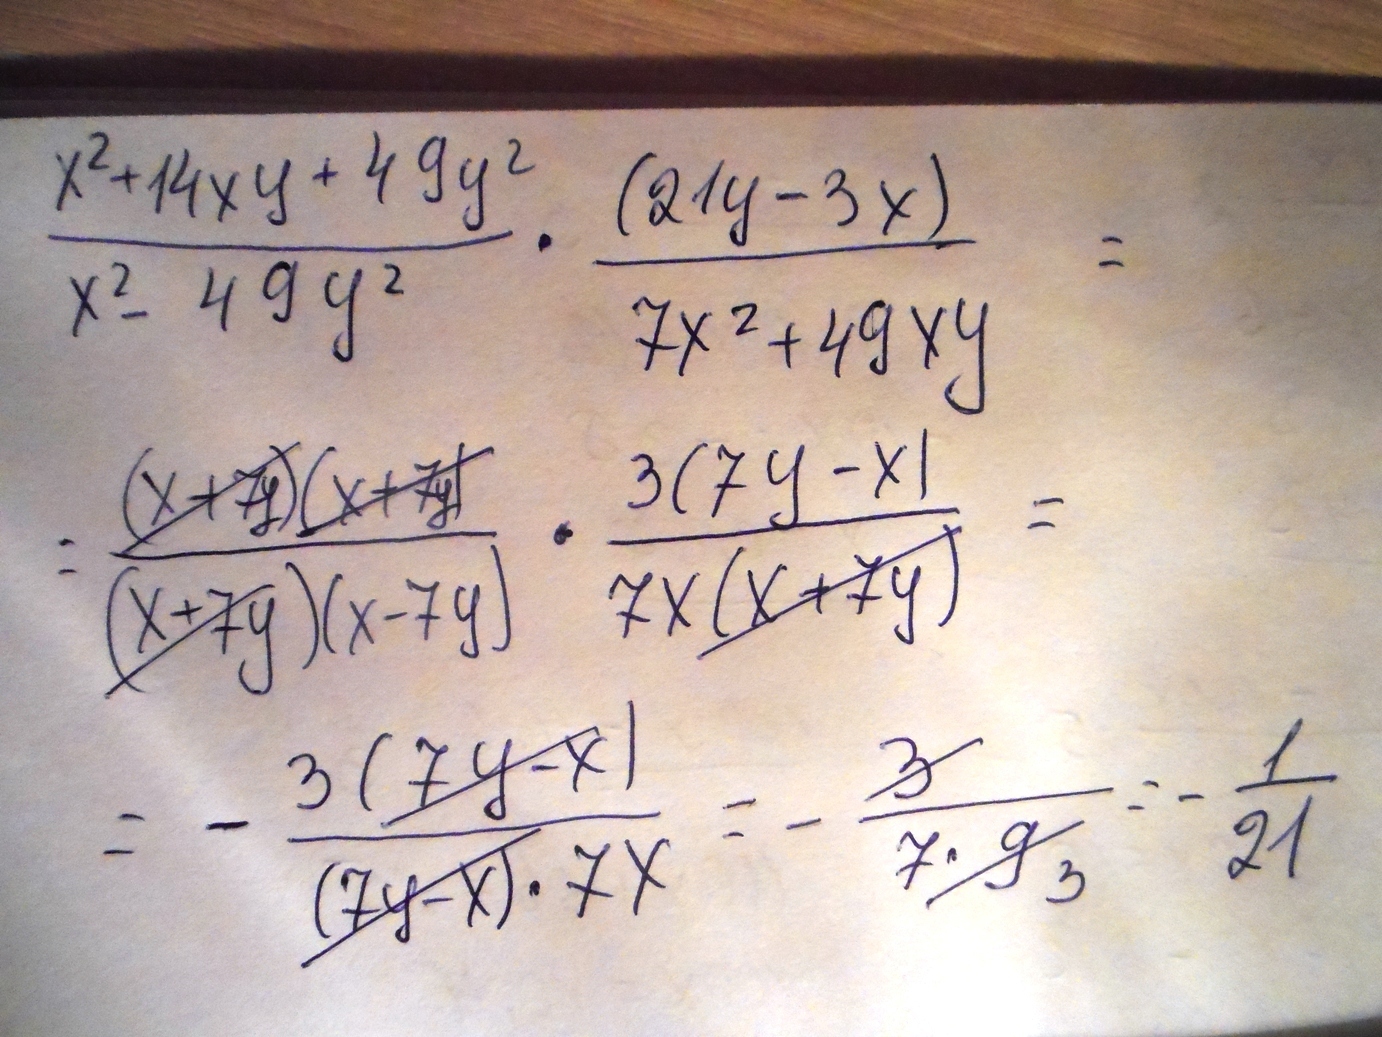 (x²+14xy+49y²)/(x²-49y²) · (21y-3x)/(7x²+49xy) =
= (x+7y)(x+7y)/(x+7y)(x-7y) · 3(7y-x)/7x(x+7y) =
= - 3(7y-x)/(7y-x)·7x = - 3/7·9 3 = - 1/21